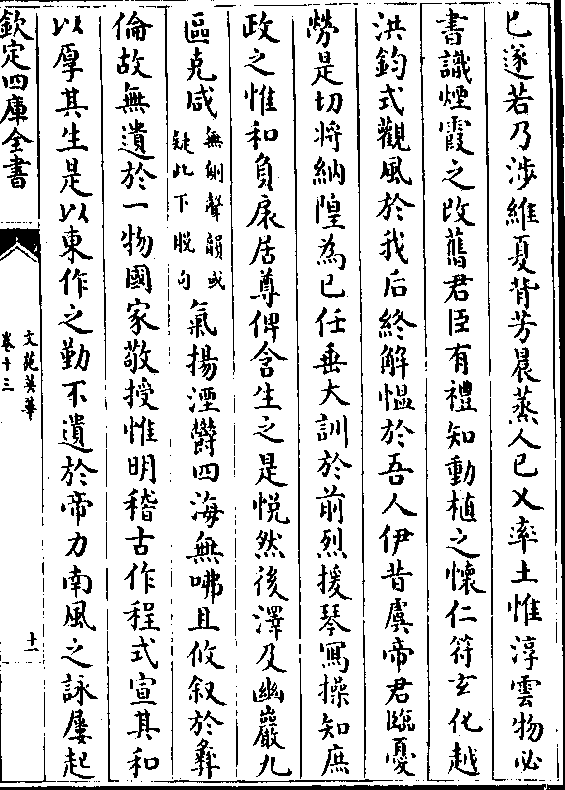 已遂若乃涉維夏背芳晨蒸人已乂率土惟淳雲物必
書識煙霞之改舊君臣有禮知動植之懷仁符玄化越
洪鈞式觀風於我后終解愠於吾人伊昔虞帝君臨憂
勞是切將納隍為已任垂大訓於前烈援琴寫操知庶
政之惟和負扆居尊俾含生之是悅然後澤及幽巖九
區克咸無別聲韻或疑此下脱句氣揚湮欝四海無咈且攸叙於彝
倫故無遺於一物國家敬授惟明稽古作程式宣其和
以厚其生是以東作之勤不遺於帝力南風之詠屢起
欽定四庫全書
文苑英華
卷十三
十一